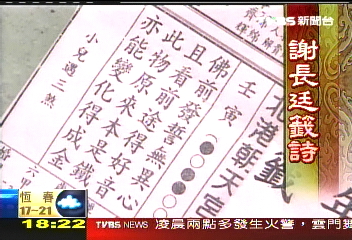 TVBS新聞台
謝長廷籤詩
北港朝天宮
籤
壬寅
佛前發誓無異心
且看前途得好音
此物原來本是鐵
亦能變化得成金
小兒過三煞
恆春
17-21
18:22
TVBS NEWS
凌晨兩點多發生火警，雲門舞